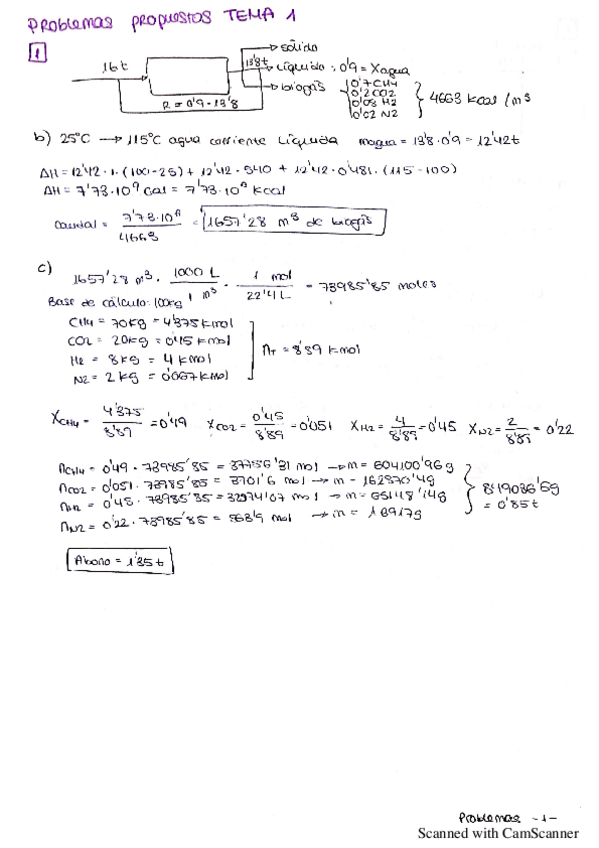 PROBLEMAS PROPUESTOS TEMA 1
1
16t
13'8t
sólido
Líquido: 0'9 = Xagua
biogás
0'7 CH4
0'2 CO2
0'08 H2
0'02 N2
4663 kcal/m3
R = 0'9·13'8
b) 25ºC → 115ºC agua corriente líquida magua = 13'8·0'9 = 12'42t
ΔH = 12'42·1·(100-25) + 12'42·540 + 12'42·0'481·(115-100)
ΔH = 7'73·10⁹ cal = 7'73·10⁶ kcal
Caudal = 7'73·10⁶ / 4663 = 1657'28 m3 de biogás
c) 1657'28 m3 · 1000 L / 1 m3 · 1 mol / 22'4 L = 73985'85 moles
Base de cálculo: 100kg
CH4 = 70kg = 4'375 kmol
CO2 = 20kg = 0'45 kmol
H2 = 8kg = 4 kmol
N2 = 2 kg = 0'067 kmol
nT = 8'89 kmol
XCH4 = 4'375 / 8'89 = 0'49 XCO2 = 0'45 / 8'89 = 0'051 XH2 = 4 / 8'89 = 0'45 XN2 = 2 / 8'89 = 0'22
nCH4 = 0'49 · 73985'85 = mol → m = 604100'96g
nCO2 = 0'051 · 73985'85 = 3701'6 mol → m = 162870'4g
0'45 · 73985'85 = mol → m =
nN2 = 0'22 · 73985'85 = mol → m =
= 0'85t
Abono = 1'35t
Problemas -1-
Scanned with CamScanner